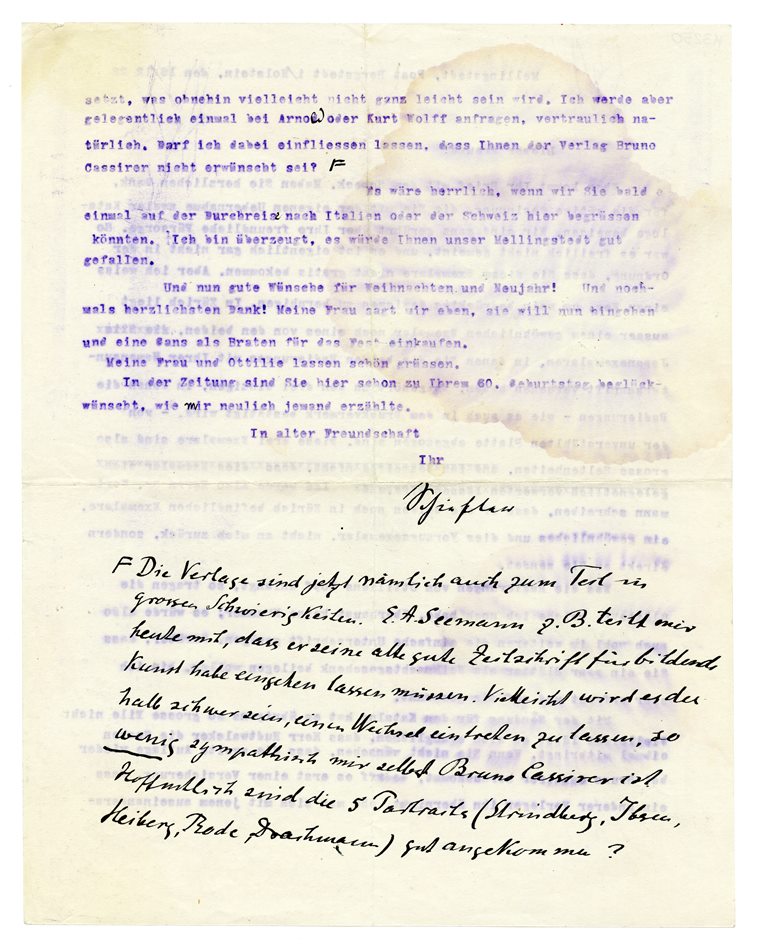 setzt, was ohnehin vielleicht nicht ganz leicht sein wird. Ich werde aber
gelegentlich einmal bei Arnold oder Kurt Wolff anfragen, vertraulich na-
türlich. Darf ich dabei einfliessen lassen, dass Ihnen der Verlag Bruno
Cassirer nicht erwünscht sei? F
Es wäre herrlich, wenn wir Sie bald
einmal auf der Durchreise nach Italien oder der Schweiz hier begrüssen
könnten. Ich bin überzeugt, es würde Ihnen unser Mellingstedt gut
gefallen.
Und nun gute Wünsche für Weihnachten und Neujahr! Und noch-
mals herzlichsten Dank! Meine Frau sagt mir eben, sie will nun hingehen
und eine Gans als Braten für das Fest einkaufen.
Meine Frau und Ottilie lassen schön grüssen.
In der Zeitung sind Sie hier schon zu Ihrem 60. Geburtstag beglück-
wünscht, wie mir neulich jemand erzählte.
In alter Freundschaft
Ihr
Schiefler
F Die Verlage sind jetzt nämlich auch zum Teil in
grossen Schwierigkeiten. E. A. Seemann z. B. teilt mir
heute mit, dass er seine alte gute Zeitschrift für bildende
Kunst habe eingehen lassen müssen. Vielleicht wird es des
halb schwer sein, einen Wechsel eintreten zu lassen, so
wenig sympathisch mir selbst Bruno Cassirer ist
Hoffentlich sind die 5 Portraits (Strindberg, Ibsen,
Heiberg, Rode, Drachmann) gut angekommen?